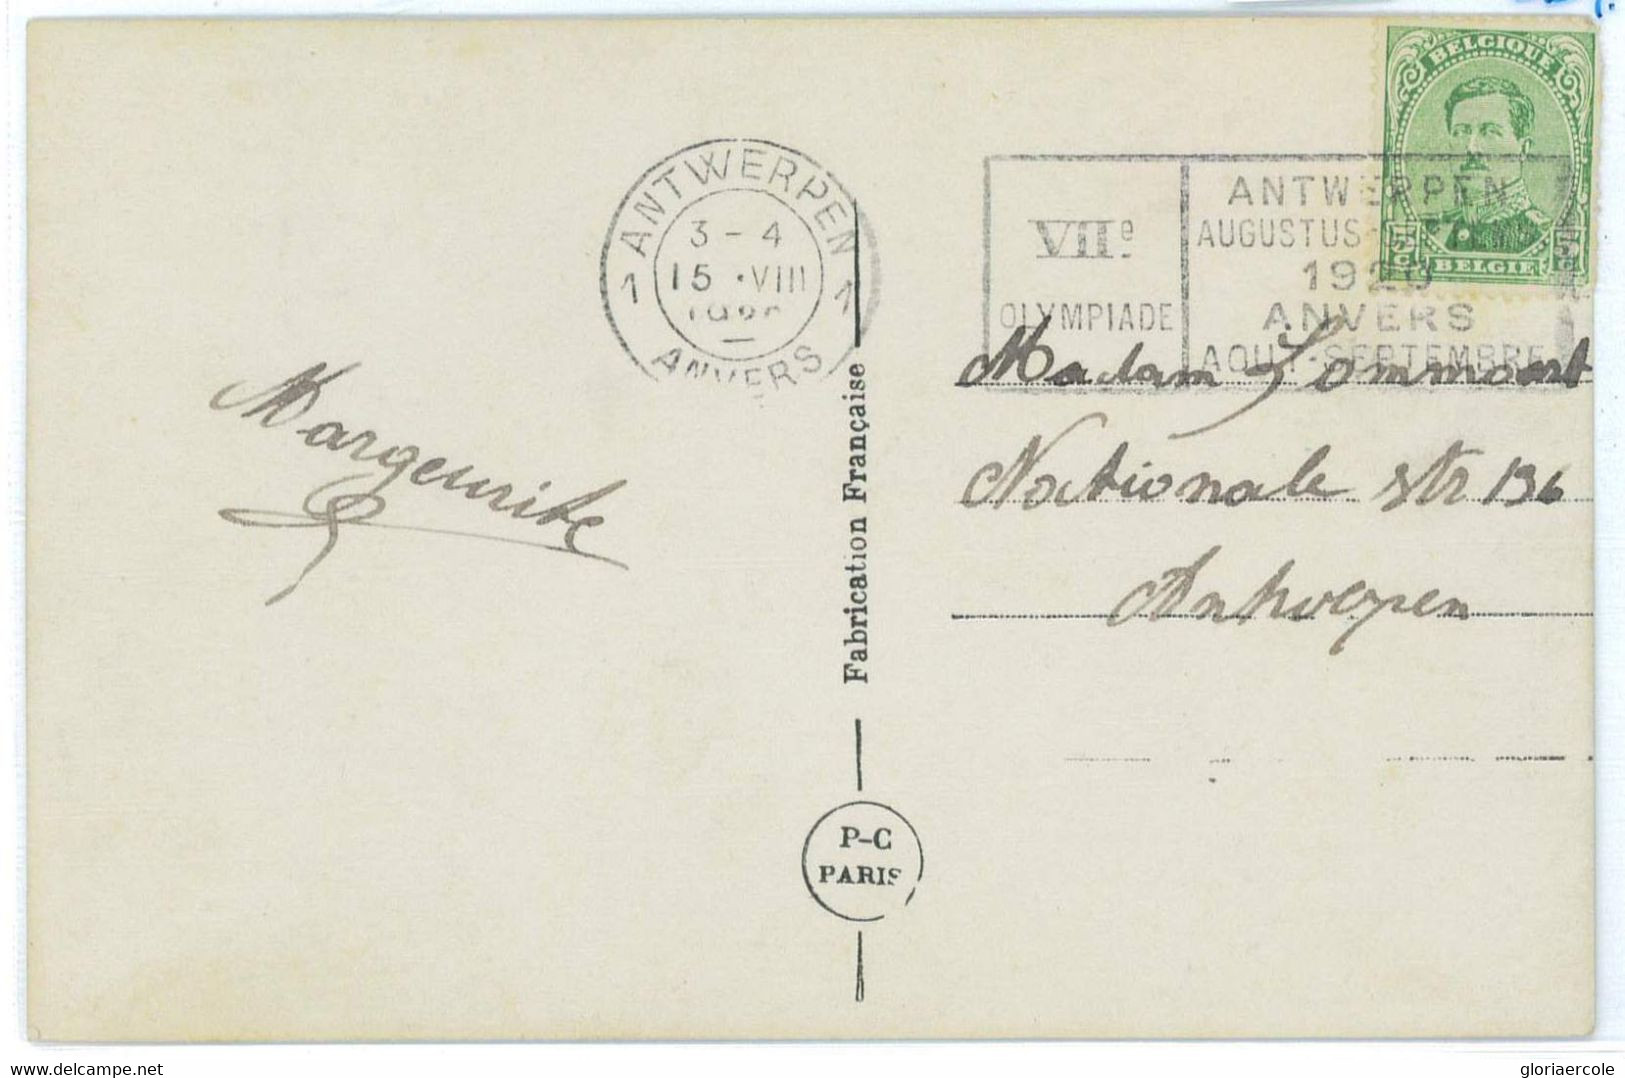 BELGIQUE
5 c 5 c
BELGIE
ANTWERPEN
3 - 4
1 15 · VIII 1
1920
ANVERS
VIIe
OLYMPIADE
ANTWERPEN
AUGUSTUS-SEPTEMB
1920
ANVERS
AOUT-SEPTEMBRE
Margeurite
Madam
Nationale str 136
Antwerpen
Fabrication Française
P-C
PARIS
the-stamps.com
gloriaercole